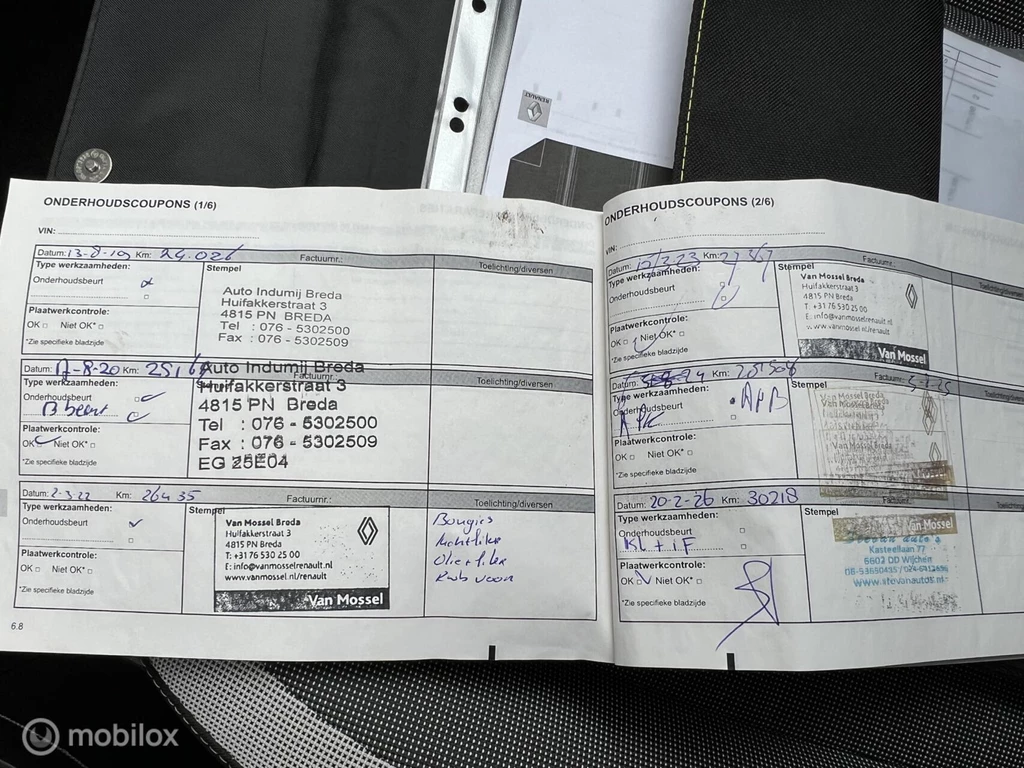 RENAULT
ONDERHOUDSCOUPONS (1/6)
VIN:
Datum: 13-8-19 Km: 24.026 Factuurnr.:
Type werkzaamheden:
Stempel
Toelichting/diversen
Onderhoudsbeurt
Auto Indumij Breda
Huifakkerstraat 3
4815 PN BREDA
Tel : 076 - 5302500
Fax : 076 - 5302509
Plaatwerkcontrole:
OK Niet OK*
*Zie specifieke bladzijde
Datum: 17-8-20 Km: Factuurnr.:
Type werkzaamheden:
Toelichting/diversen
Onderhoudsbeurt
B beurt
Auto Indumij Breda
Huifakkerstraat 3
4815 PN Breda
Tel : 076 - 5302500
Fax : 076 - 5302509
EG 25E04
Plaatwerkcontrole:
OK Niet OK*
*Zie specifieke bladzijde
Datum: 2-3-22 Km: 26435 Factuurnr.:
Type werkzaamheden:
Stempel
Toelichting/diversen
Onderhoudsbeurt
Van Mossel Breda
Huifakkerstraat 3
4815 PN Breda
T: +31 76 530 25 00
E: info@vanmosselrenault.nl
www.vanmossel.nl/renault
Van Mossel
Bougies
Plaatwerkcontrole:
OK Niet OK*
*Zie specifieke bladzijde
6.8
ONDERHOUDSCOUPONS (2/6)
VIN:
Datum: Km: Factuurnr.:
Type werkzaamheden:
Stempel
Onderhoudsbeurt
Van Mossel Breda
Huifakkerstraat 3
4815 PN Breda
T. +31 76 530 25 00
E. info@vanmosselrenault.nl
www.vanmossel.nl/renault
Van Mossel
Plaatwerkcontrole:
OK Niet OK*
*Zie specifieke bladzijde
Datum: Km: Factuurnr.:
Type werkzaamheden:
Stempel
Onderhoudsbeurt
APK
Van Mossel Breda
Plaatwerkcontrole:
OK Niet OK*
*Zie specifieke bladzijde
Datum: 20-2-26 Km: 30218
Type werkzaamheden:
Stempel
Onderhoudsbeurt
Van Mossel
Kasteellaan 77
6602 DD Wijchen
www.stevanautos.nl
Plaatwerkcontrole:
OK Niet OK*
*Zie specifieke bladzijde
mobilox